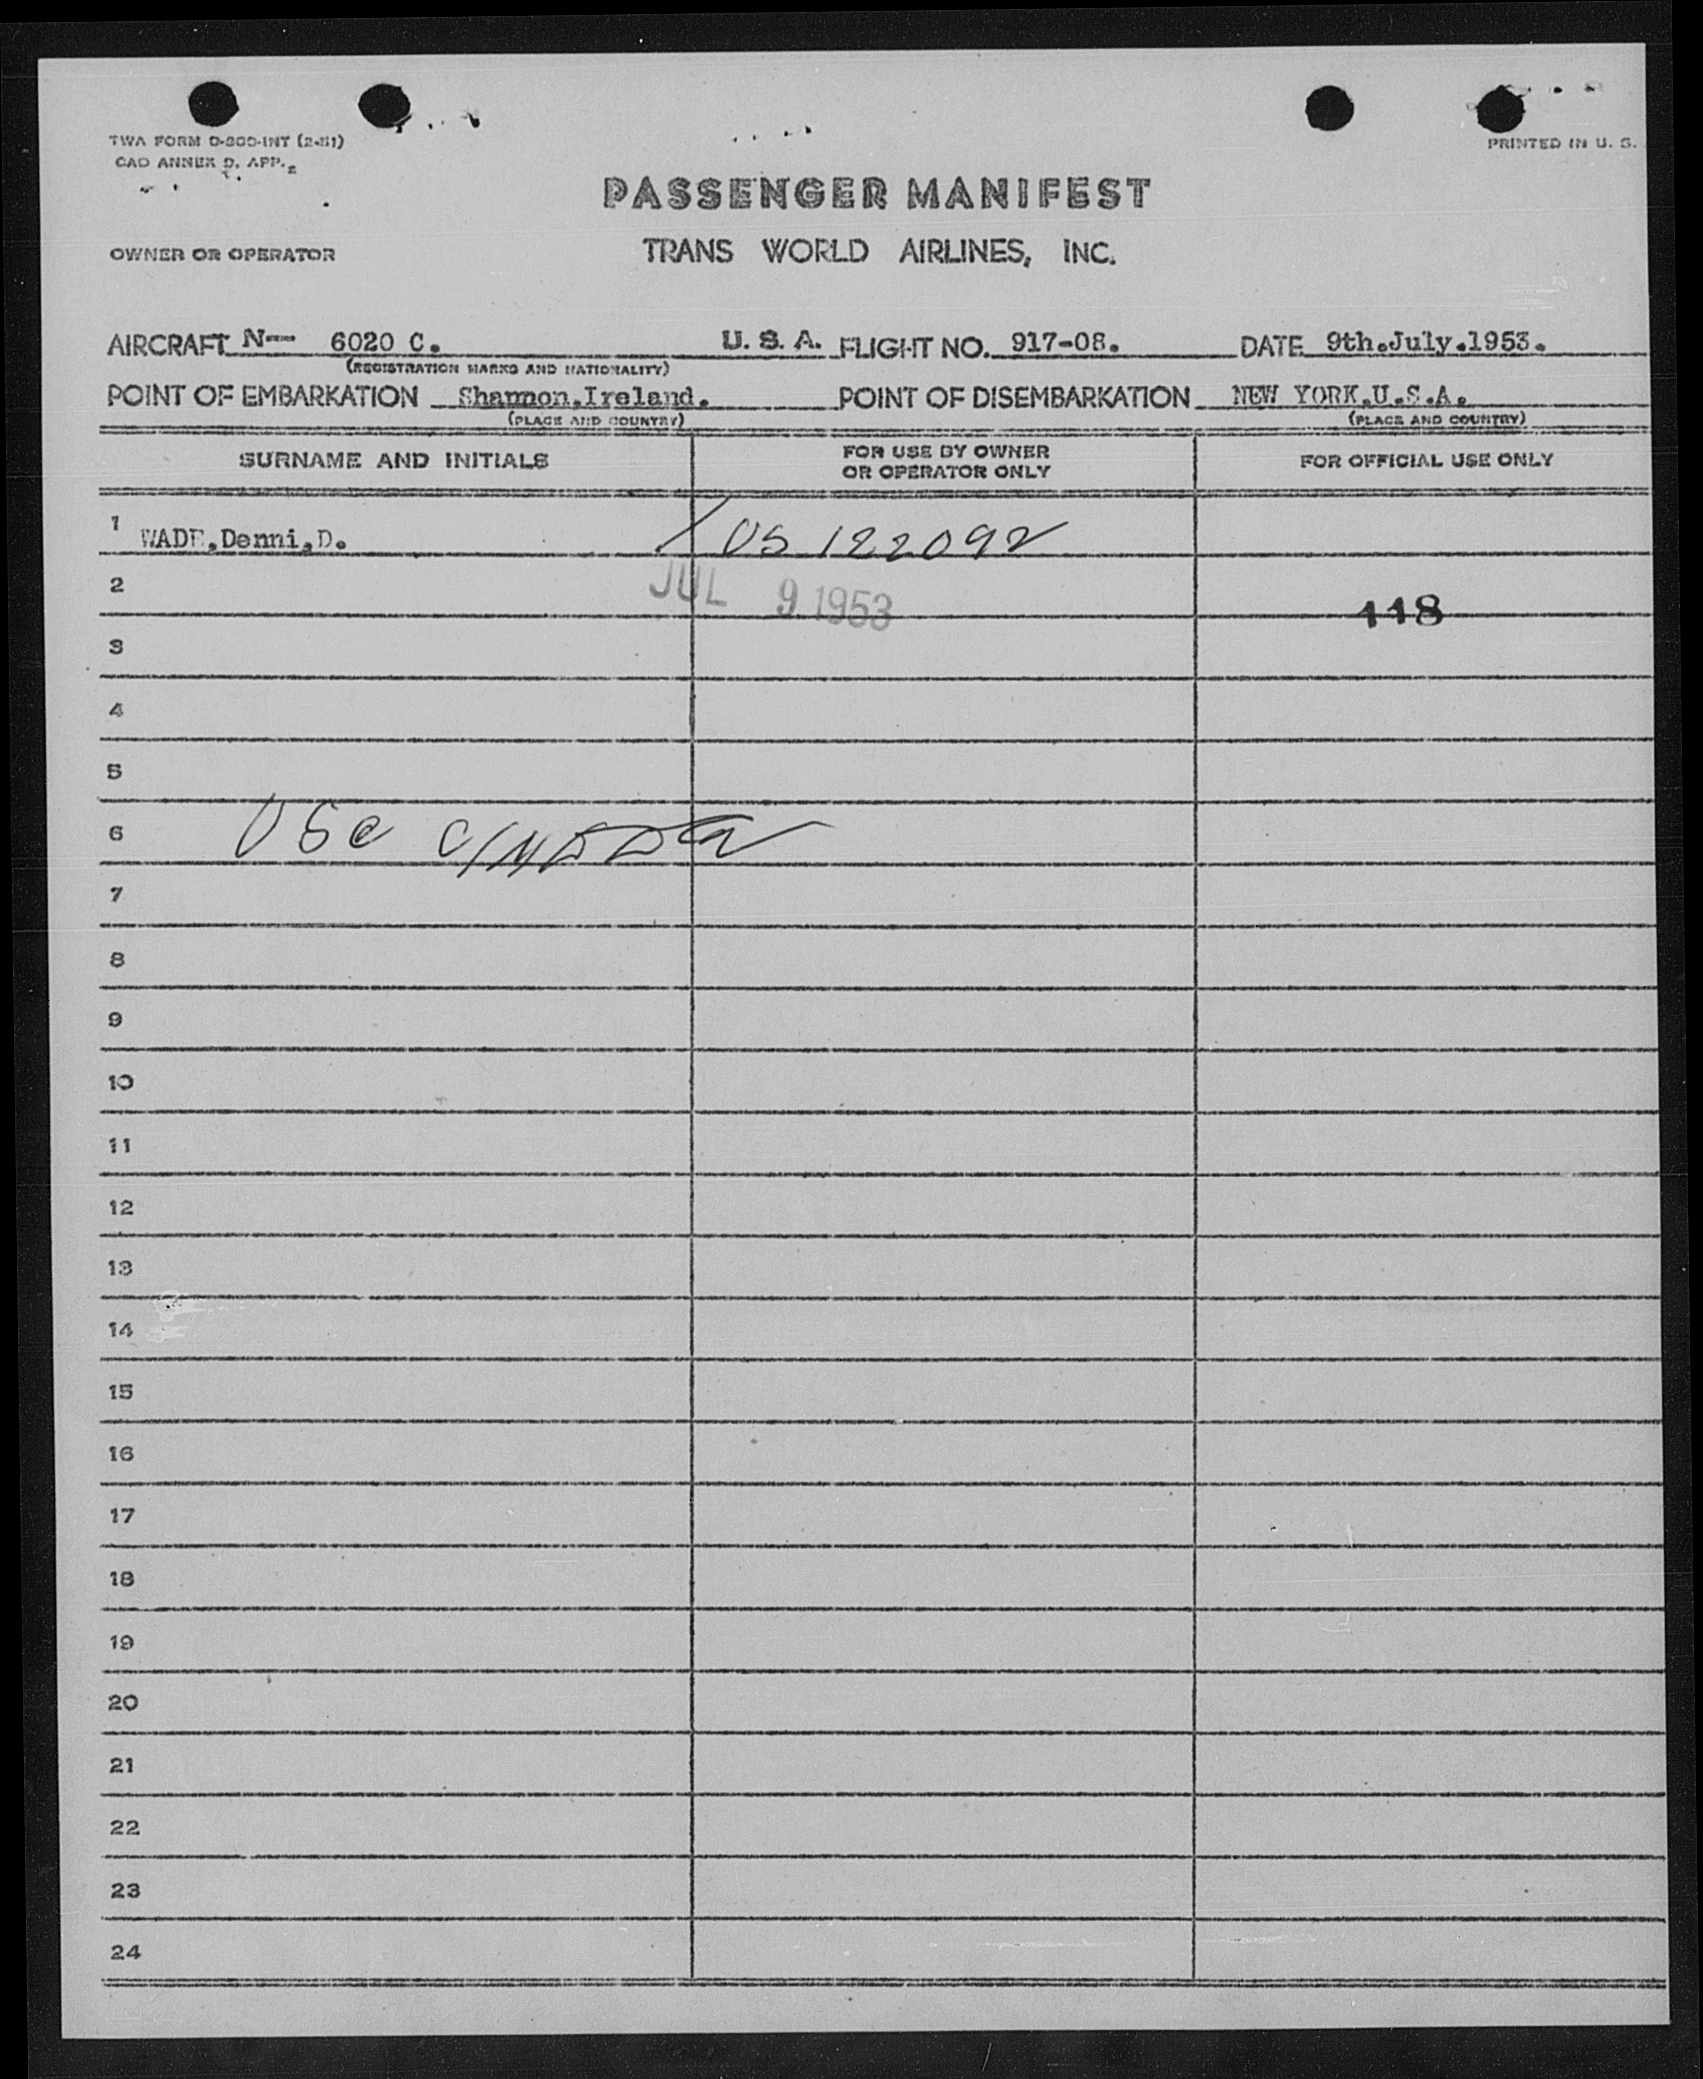 TWA FORM O-800-INT (2-51)
CAO ANNEX 9, APP. 2
PRINTED IN U. S.
PASSENGER MANIFEST
OWNER OR OPERATOR TRANS WORLD AIRLINES, INC.
AIRCRAFT N-- 6020 C. U. S. A. FLIGHT NO. 917-08. DATE 9th.July.1953.
(REGISTRATION MARKS AND NATIONALITY)
POINT OF EMBARKATION Shannon,Ireland. POINT OF DISEMBARKATION NEW YORK.U.S.A.
(PLACE AND COUNTRY) (PLACE AND COUNTRY)
SURNAME AND INITIALS FOR USE BY OWNER OR OPERATOR ONLY FOR OFFICIAL USE ONLY
1 WADE,Denni,D. / US 122092
2 JUL 9 1953 118
3
4
5
6 USC
7
8
9
10
11
12
13
14
15
16
17
18
19
20
21
22
23
24